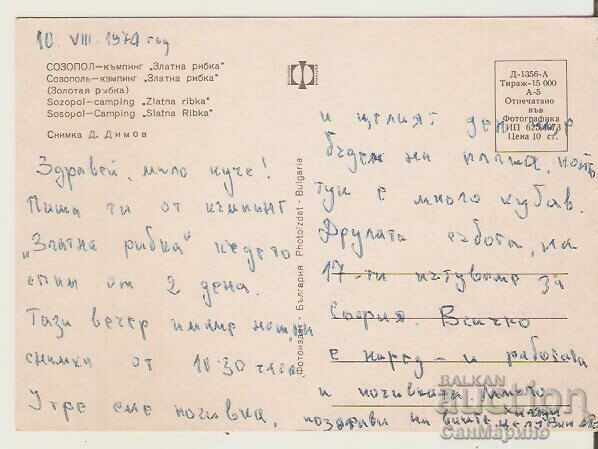 10. VIII. 1974 год
СОЗОПОЛ–къмпинг „Златна рибка“
Созополь–кэмпинг „Златна рибка“
(Золотая рыбка)
Sozopol–camping „Zlatna ribka“
Sosopol–Camping „Slatna Ribka“
Снимка Д. Димов
Здравей, мило куче!
Пиша ти от къмпинг
„Златна рибка“ където
спим от 2 дена.
Тази вечер имаме нощни
снимки от 10.30 часа.
Утре сме почивка,
Фотоиздат - България Photoizdat - Bulgaria
Д–1356–А
Тираж–15 000
А–5
Отпечатано
във
Фотографика
ИП
Цена 10 ст.
и целият ден ще
бъдем на плажа, който
тук е много хубав.
Другата събота, на
17-ти пътуваме за
София. Всичко
е наред – и работата
и почивката. Много
поздрави на вашите
BALKAN
auction
СанМарино